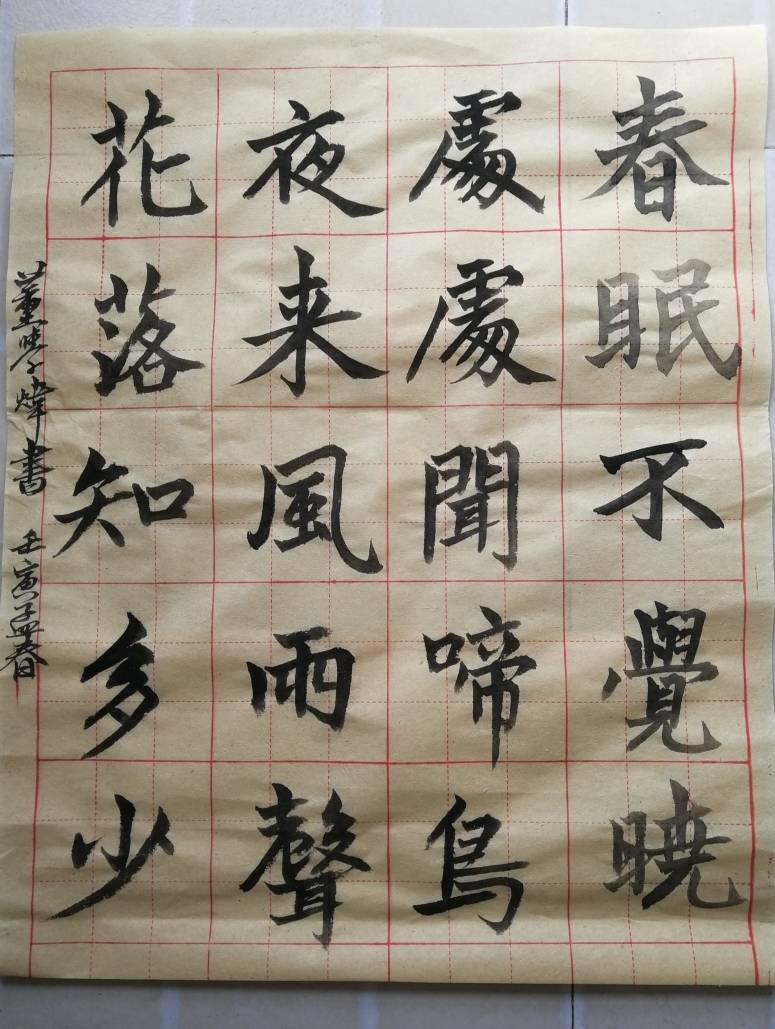 春眠不覺暁
處處聞啼鳥
夜来風雨聲
花落知多少
董學煒書 壬寅孟春